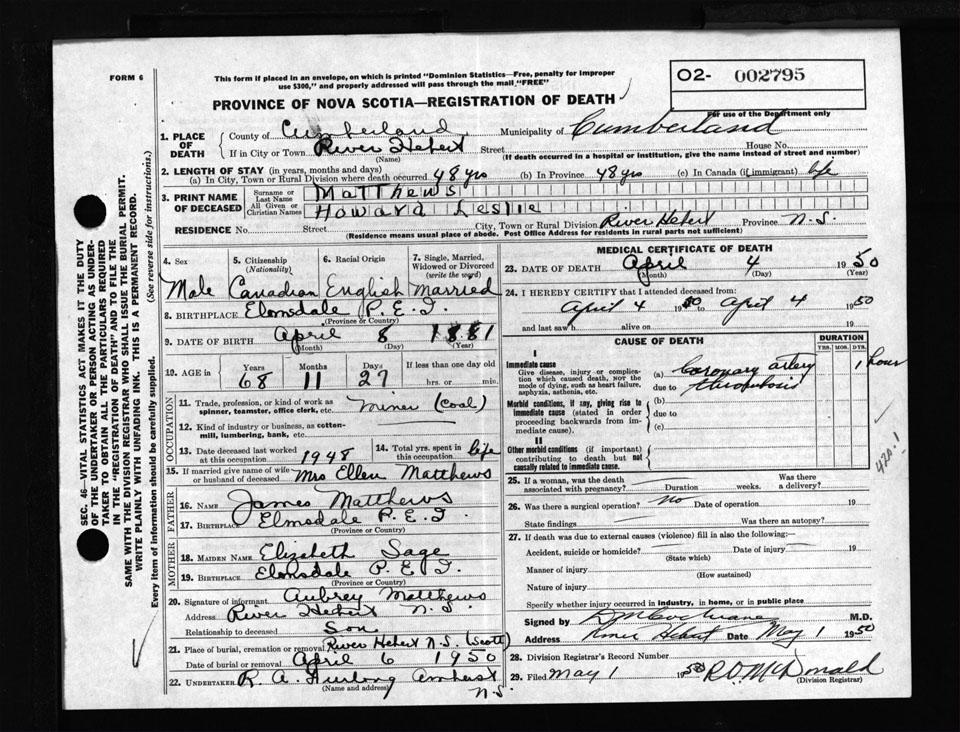 FORM 6
This form if placed in an envelope, on which is printed "Dominion Statistics—Free, penalty for improper
use $300," and properly addressed will pass through the mail "FREE"
O2- 002795
For use of the Department only
PROVINCE OF NOVA SCOTIA—REGISTRATION OF DEATH
1. PLACE OF DEATH
County of Cumberland Municipality of Cumberland
If in City or Town River Hebert Street House No.
(Name) (If death occurred in a hospital or institution, give the name instead of street and number)
2. LENGTH OF STAY (in years, months and days)
(a) In City, Town or Rural Division where death occurred 48 yrs (b) In Province 48 yrs (c) In Canada (if immigrant) life
3. PRINT NAME OF DECEASED
Surname or Last Name Matthews
All Given or Christian Names Howard Leslie
RESIDENCE No. Street City, Town or Rural Division River Hebert Province N.S.
(Residence means usual place of abode. Post Office Address for residents in rural parts not sufficient)
4. Sex 5. Citizenship (Nationality) 6. Racial Origin 7. Single, Married, Widowed or Divorced (write the word)
Male Canadian English Married
8. BIRTHPLACE Elmsdale P.E.I.
(Province or Country)
9. DATE OF BIRTH April 8 1881
(Month) (Day) (Year)
10. AGE in Years Months Days If less than one day
68 11 27 hrs. or min.
OCCUPATION
11. Trade, profession, or kind of work as spinner, teamster, office clerk, etc. miner (Coal)
12. Kind of industry or business, as cotton-mill, lumbering, bank, etc.
13. Date deceased last worked at this occupation 1948 14. Total yrs. spent in this occupation life
15. If married give name of wife or husband of deceased Mrs Ellen Matthews
FATHER
16. Name James Matthews
17. Birthplace Elmsdale P.E.I.
(Province or Country)
MOTHER
18. Maiden Name Elizabeth Sage
19. Birthplace Elmsdale P.E.I.
(Province or Country)
20. Signature of informant Aubrey Matthews
Address River Hebert N.S.
Relationship to deceased Son
21. Place of burial, cremation or removal River Hebert N.S. (Scott)
Date of burial or removal April 6 1950
22. UNDERTAKER R. A. Furlong Amherst
N.S.
MEDICAL CERTIFICATE OF DEATH
23. DATE OF DEATH April 4 1950
(Month) (Day) (Year)
24. I HEREBY CERTIFY that I attended deceased from:
April 4 1950 to April 4 1950
and last saw h alive on 19
CAUSE OF DEATH DURATION
YRS. MOS. DYS.
I
Immediate cause
Give disease, injury or complication which caused death, NOT the mode of dying, such as heart failure, asphyxia, asthenia, etc.
(a) Coronary artery 1 hour
due to thrombosis
Morbid conditions, if any, giving rise to immediate cause (stated in order proceeding backwards from immediate cause).
(b)
due to
(c)
II
Other morbid conditions (if important) contributing to death but not causally related to immediate cause.
420.1
25. If a woman, was the death associated with pregnancy? Duration weeks. Was there a delivery?
26. Was there a surgical operation? no Date of operation 19
State findings Was there an autopsy?
27. If death was due to external causes (violence) fill in also the following:—
Accident, suicide or homicide? Date of injury 19
(State which)
Manner of injury
(How sustained)
Nature of injury
Specify whether injury occurred in industry, in home, or in public place
Signed by M.D.
Address River Hebert Date May 1 1950
28. Division Registrar's Record Number
29. Filed May 1 1950 R.O. McDonald
(Division Registrar)
SEC. 46—VITAL STATISTICS ACT MAKES IT THE DUTY
OF THE UNDERTAKER OR PERSON ACTING AS UNDER-
TAKER TO OBTAIN ALL THE PARTICULARS REQUIRED
IN THE "REGISTRATION OF DEATH" AND TO FILE THE
SAME WITH THE DIVISION REGISTRAR WHO SHALL ISSUE THE BURIAL PERMIT.
WRITE PLAINLY WITH UNFADING INK. THIS IS A PERMANENT RECORD.
Every item of information should be carefully supplied. (See reverse side for instructions.)